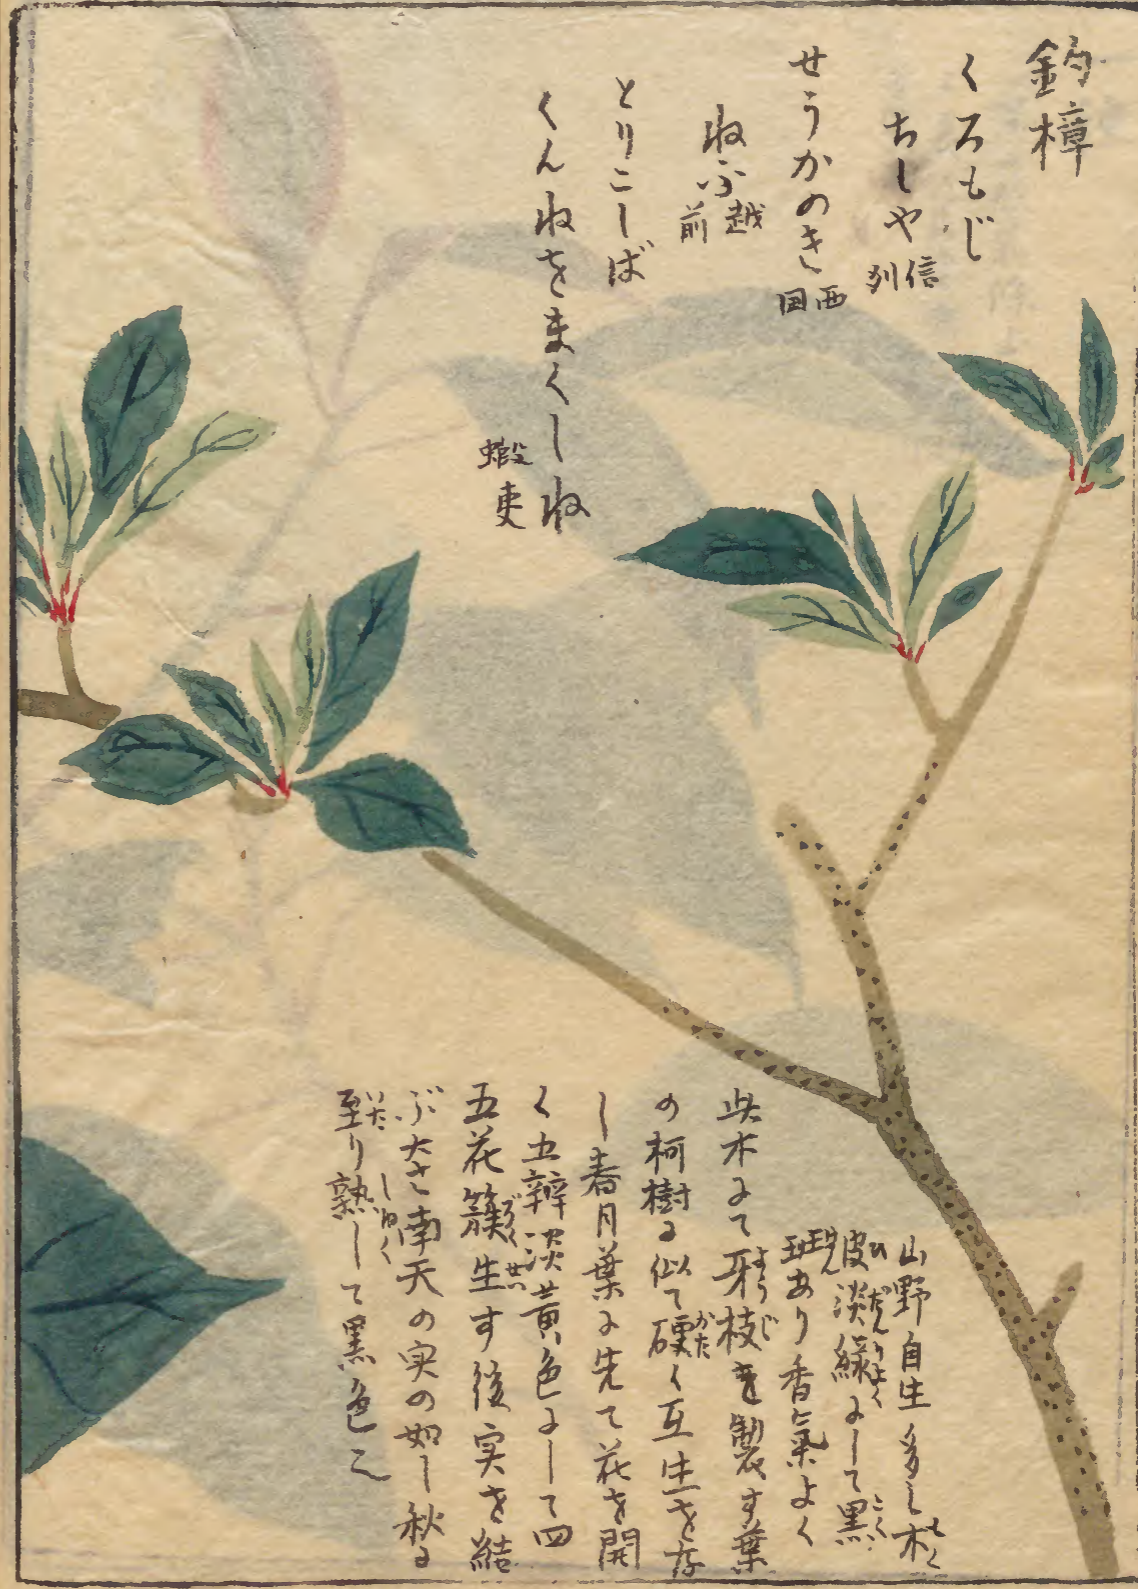 釣樟
くろもじ
ちしや 信列
せうかのき 西国
ねふ 越前
とりこしば
くんねをまくしね 蝦夷
山野自生多し木
皮淡緑にして黒
斑あり香氣よく
此木にて牙枝を製す葉
の柯樹に似て硬く互生を存
し春月葉に先て花を開
く五瓣淡黄色にして四
五花簇生す後実を結
ぶ大さ南天の実の如し秋に
至り熟して黒色こ